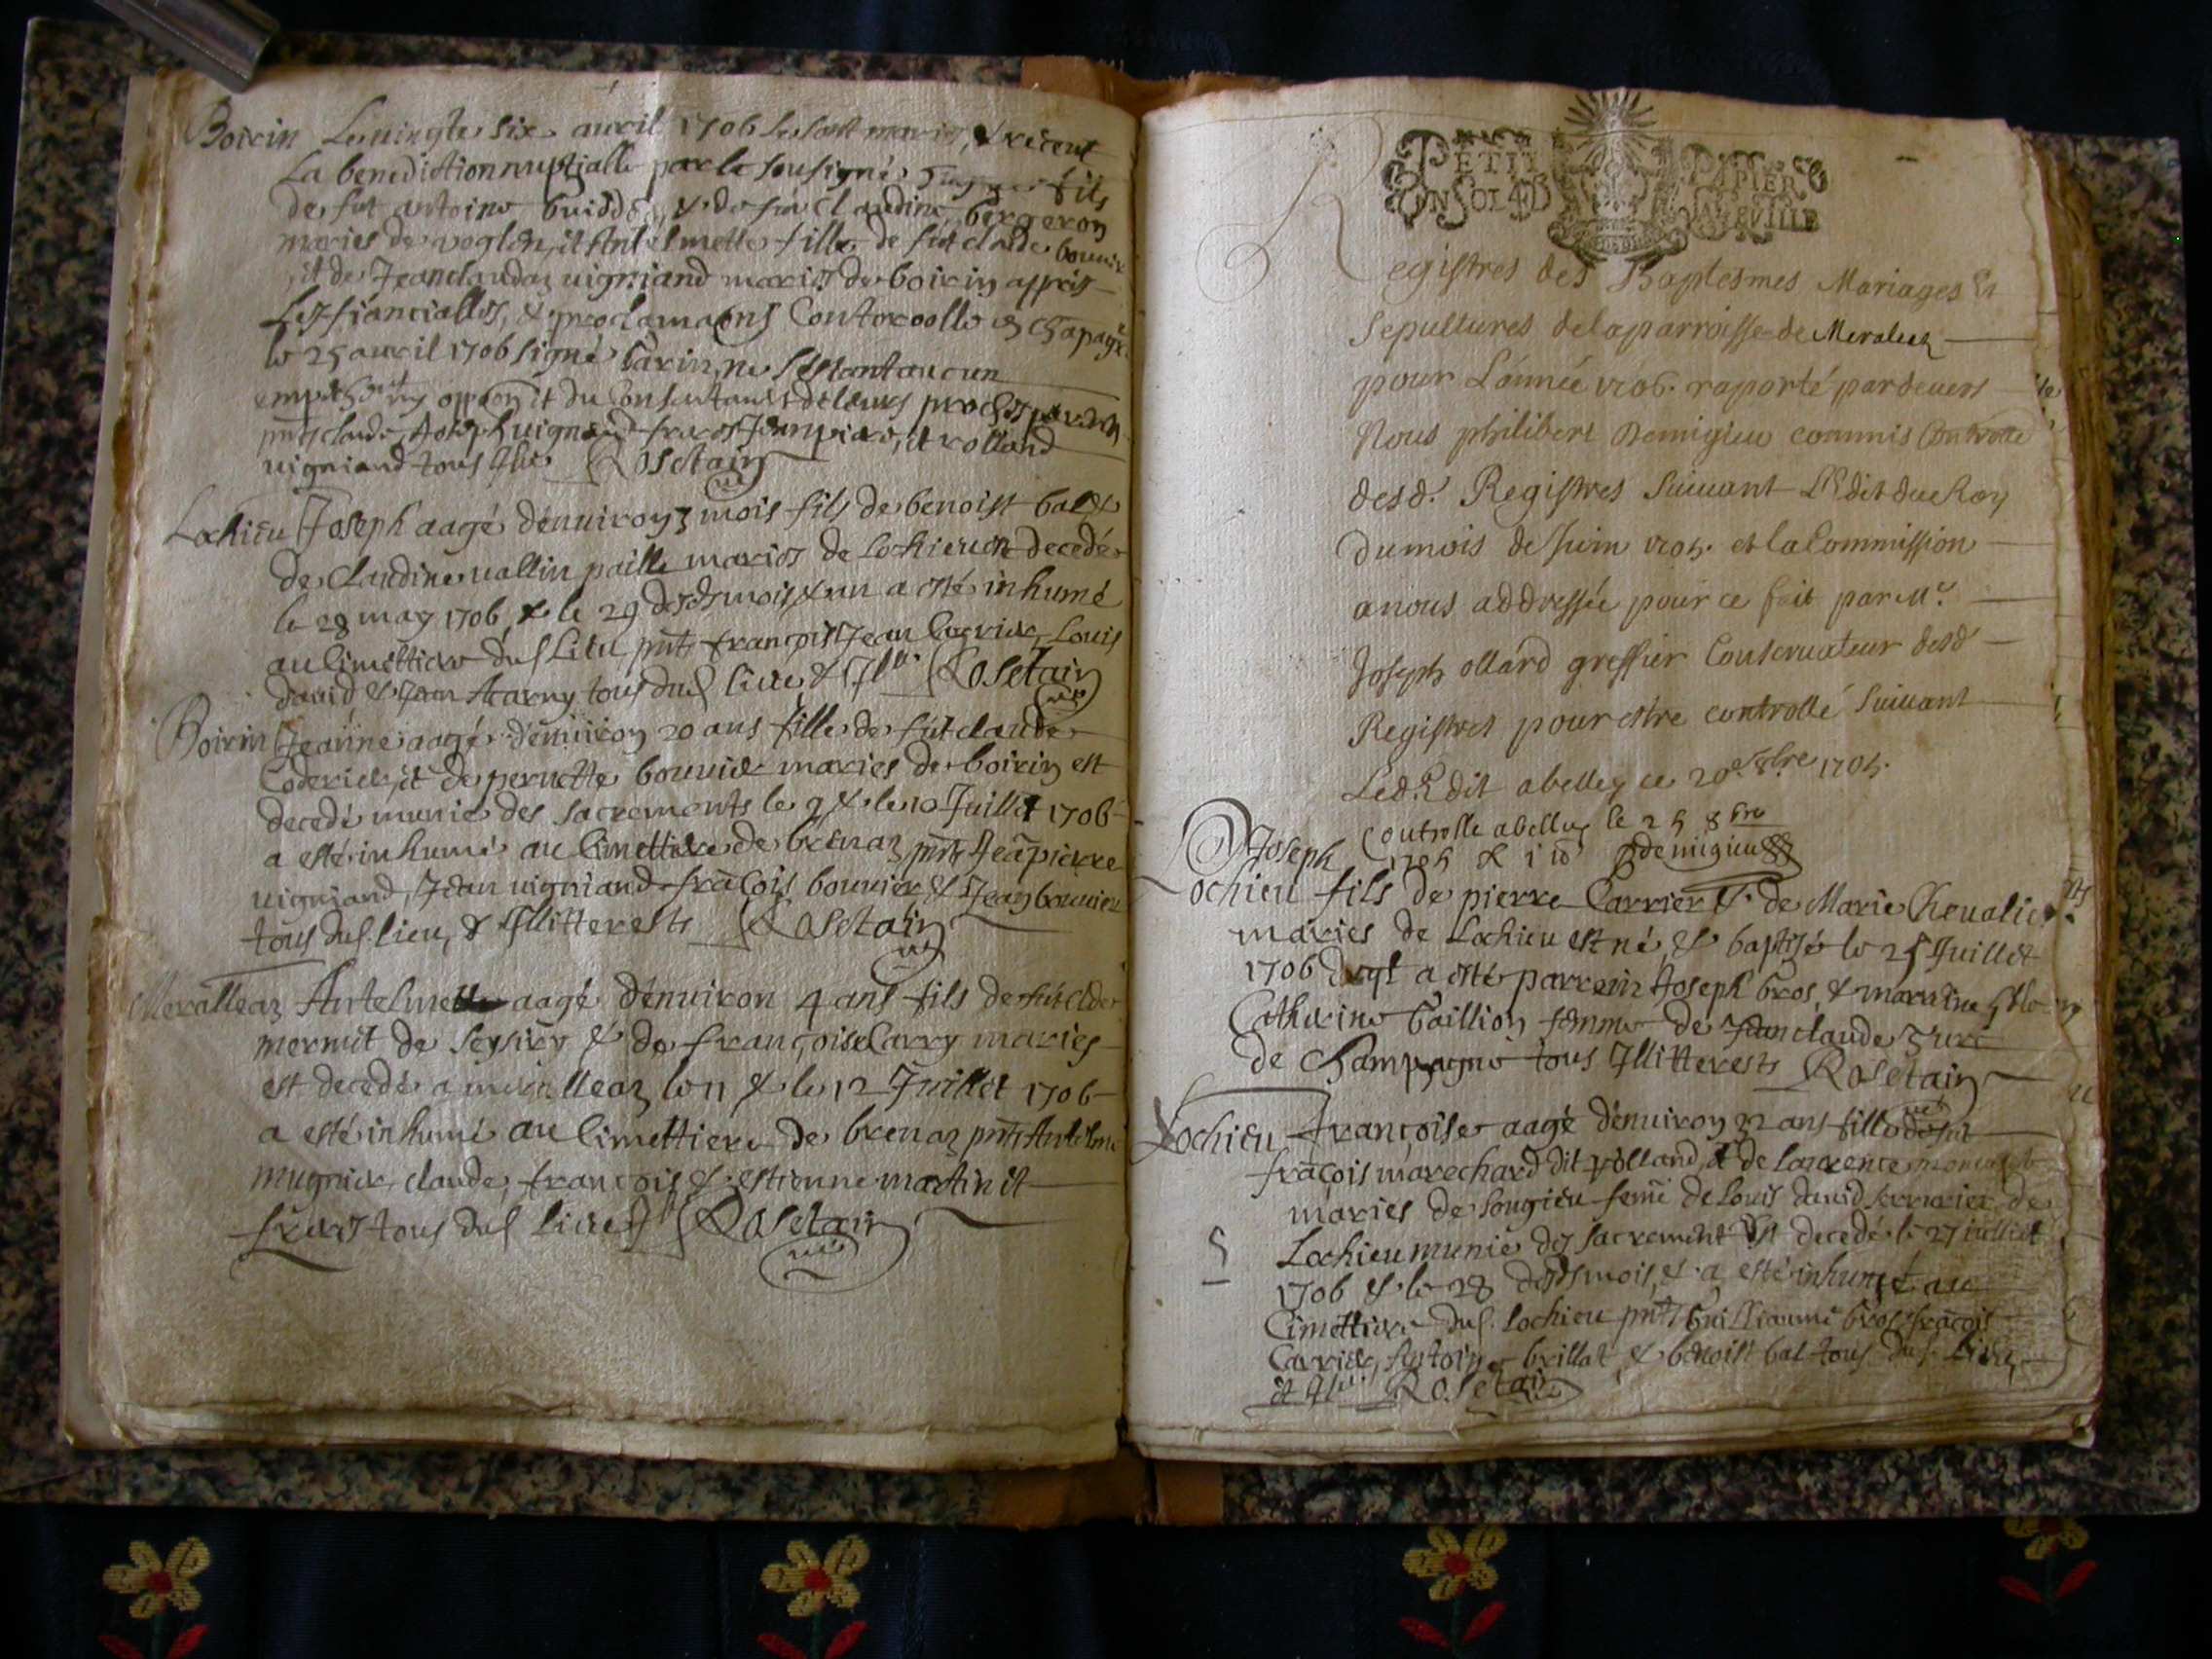 Boirin Le vingte six avril 1706 se sont mariés, & receut
La benediction nuptialle par le sousigné fils
de fut antoine Guidde, & de fue Claudine bergeron
maries de voglen, et Antelmette fille de fut claude bouvie
et de Jeanclaudaz vigniand maries de boirin appres
Les fiancialles, & proclamaons Controolle en chapagne
le 25 avril 1706 signé Garin, ne sestant aucun
oppoon et du Consentaut de leurs proches parents
pnts claude, Joseph vigniand freres Jeanpierre, et rolland
vigniand tous Illre Rosetain
Lochieu Joseph aagé denuiron 3 mois fils de benoist bal &
de Claudine vallin paille maries de lochieu est decedé
le 28 may 1706, & le 29 desds mois & an a esté inhumé
au Cimettiere dud Lieu, pnts françois Jean Carrier, Louis
david, & Jean tous dud lieu & Illre Rosetain
Boirin Jeanne aagé denuiron 20 ans fille de fut claude
Coderier, et de pernette bouvier maries de boirin est
decedé munie des sacrements le 9 & le 10 Juillet 1706
a esté inhumé au Cimettiere de brenaz pnts Jeapierre
vigniand, Jean vigniand fraçois bouvier & Jean bouvier
tous dud. lieu, & Illitterests Rosetain
Meralleaz Antelmette aagé denuiron 4 ans fils de fut clde
mermet de seysiey & de françoise Carry maries
est decedé a meralleaz le 11 & le 12 Juillet 1706
a esté inhumé au Cimettiere de brenaz pnts Antelme
mugnier, claude, françois & estienne martin et
freres tous dud lieu Rosetain
PETIT PAPIER
UN SOL 4 D LA FEVILLE
Registres des Baptesmes Mariages Et
Sepultures de la parroisse de Meraleaz
pour L'année 1706. raporté pardevers
Nous philibert Demigieu commis Controlle
desd. Registres suivant L'Edit du Roy
du mois de Juin 1705. et la Commission
a nous addressée pour ce fait par Mr.
Joseph ollard greffier Conservateur desd
Registres pour estre controllé suivant
Led. Edit a belley ce 20e 8bre 1705.
Controlle a belley le 25 8bre
1705 Demigieu
Joseph
Lochieu fils de pierre Carrier & de Marie Chevalier
maries de Lochieu est né, & baptisé le 25 Juillet
1706 duql a esté parrein Joseph Gros, & marrine
Catherine Gaillion femme de Jean claude
de Champagne tous Illitterests Rosetain
Lochieu françoise aagé denuiron 32 ans fille de fut
fraçois marechard dit rolland, & de Laurence
maries de songieu feme de Louis david serrurier de
Lochieu munie des sacrement est decedé le 27 juilliet
1706 & le 28 desds mois, & a esté inhumé au
Cimettiere dud. Lochieu pnts Guilliaume Gros fraçois
Carrier, Antoine brillat, & benoist bal tous dud. Lieu,
et Illre. Rosetain